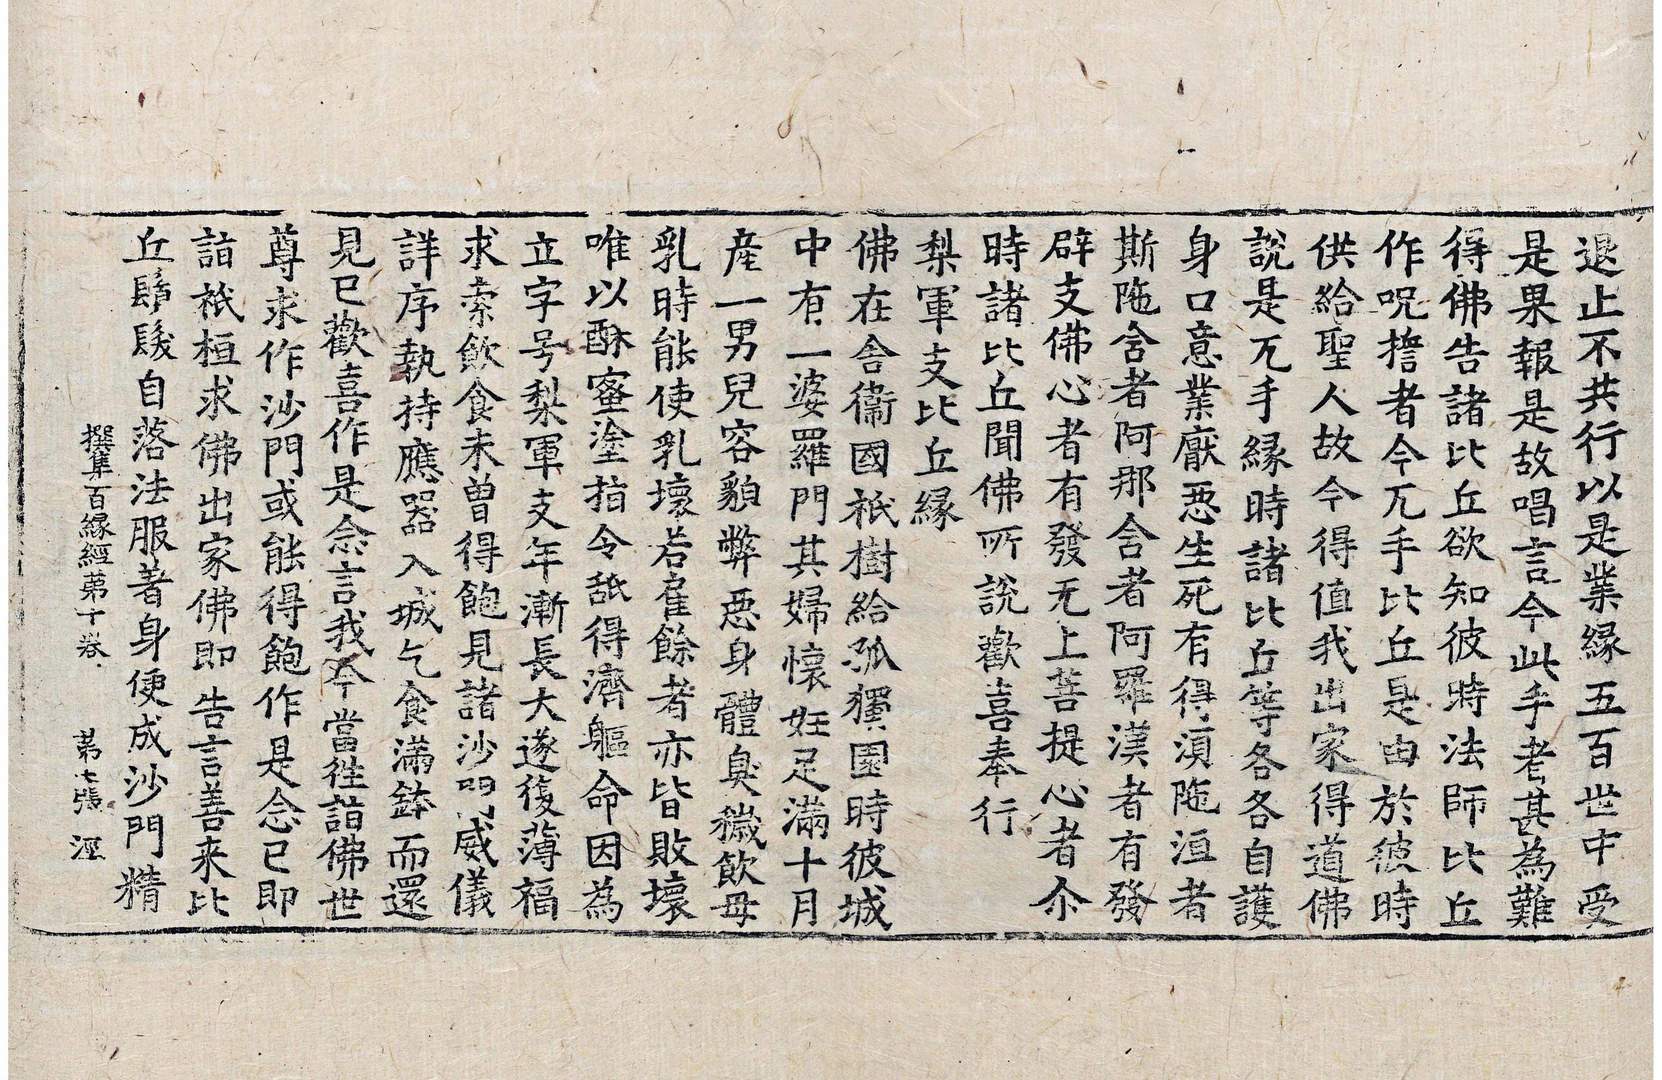 退止不共行以是業緣五百世中受
是果報是故唱言今此手者甚為難
得佛告諸比丘欲知彼時法師比丘
作呪擔者今兀手比丘是由於彼時
供給聖人故今得值我出家得道佛
說是兀手緣時諸比丘等各各自護
身口意業厭惡生死有得湏陁洹者
斯陁含者阿那含者阿羅漢者有發
辟支佛心者有發无上菩提心者尒
時諸比丘聞佛所說歡喜奉行
梨軍支比丘緣
佛在舍衞國祇樹給孤獨園時彼城
中有一婆羅門其婦懷妊足滿十月
産一男兒容貌弊惡身體臭穢飲母
乳時能使乳壞若雇餘者亦皆敗壞
唯以酥蜜塗指令舐得濟軀命因為
立字号梨軍支年漸長大遂復薄福
求索飲食未曾得飽見諸沙門威儀
詳序執持應器入城乞食滿鉢而還
見已歡喜作是念言我今當徃詣佛世
尊求作沙門或能得飽作是念已即
詣祇桓求佛出家佛即告言善来比
丘鬚髮自落法服著身便成沙門精
撰集百緣經第十卷 第七張 溼